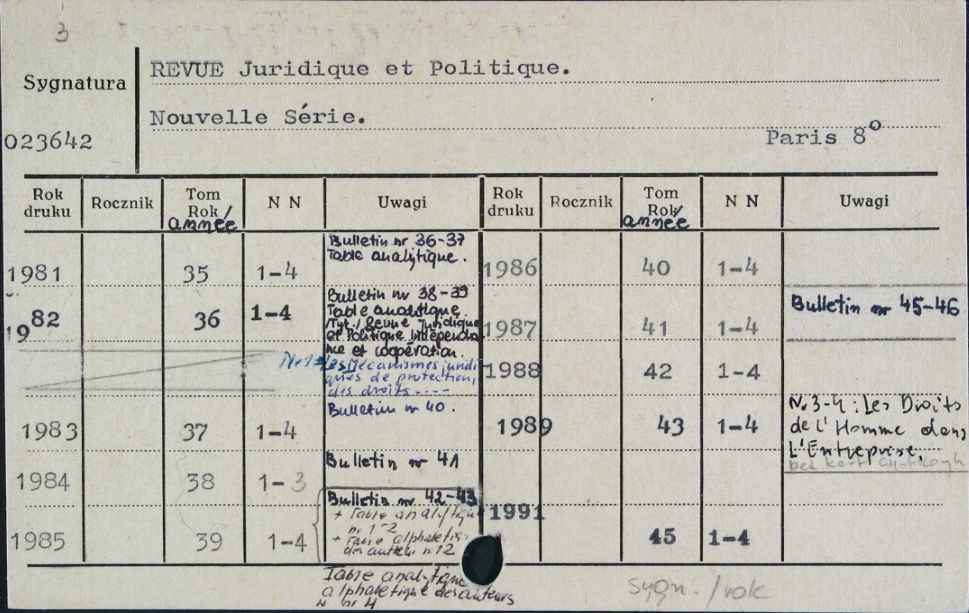 3
Sygnatura
023642
REVUE Juridique et Politique.
Nouvelle Série.
Paris 8°
Rok druku Rocznik Tom Rok/ année N N Uwagi Rok druku Rocznik Tom Rok/ année N N Uwagi
1981 35 1-4 Bulletin nr 36-37
Table analytique.
1982 36 1-4 Bulletin nr 38-39
Table analitique.
/Tyt./ Revue Juridique
et Politique Indépenda
nce et coopération.
Nr 1 Les Mécanismes juridi
ques de protection,
des droits ----
1983 37 1-4 Bulletin nr 40.
1984 38 1-3 Bulletin nr 41
1985 39 1-4 Bulletin nr 42-43
+ Table analytique
nr 1-2
+ Table alphabetiq.
des auteurs n 12
Table analytique
alphabetique des auteurs
nr 4
1986 40 1-4
1987 41 1-4 Bulletin nr 45-46
1988 42 1-4
1989 43 1-4 Nr 3-4: Les Droits
de l'Homme dans
L'Entreprise.
bez kart
1991 45 1-4
sygn. /rok